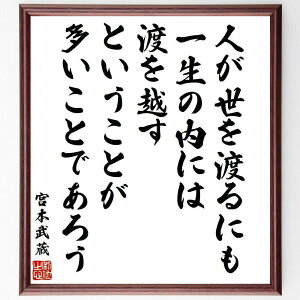 人が世を渡るにも
一生の内には
渡を越す
ということが
多いことであろう
宮本武蔵